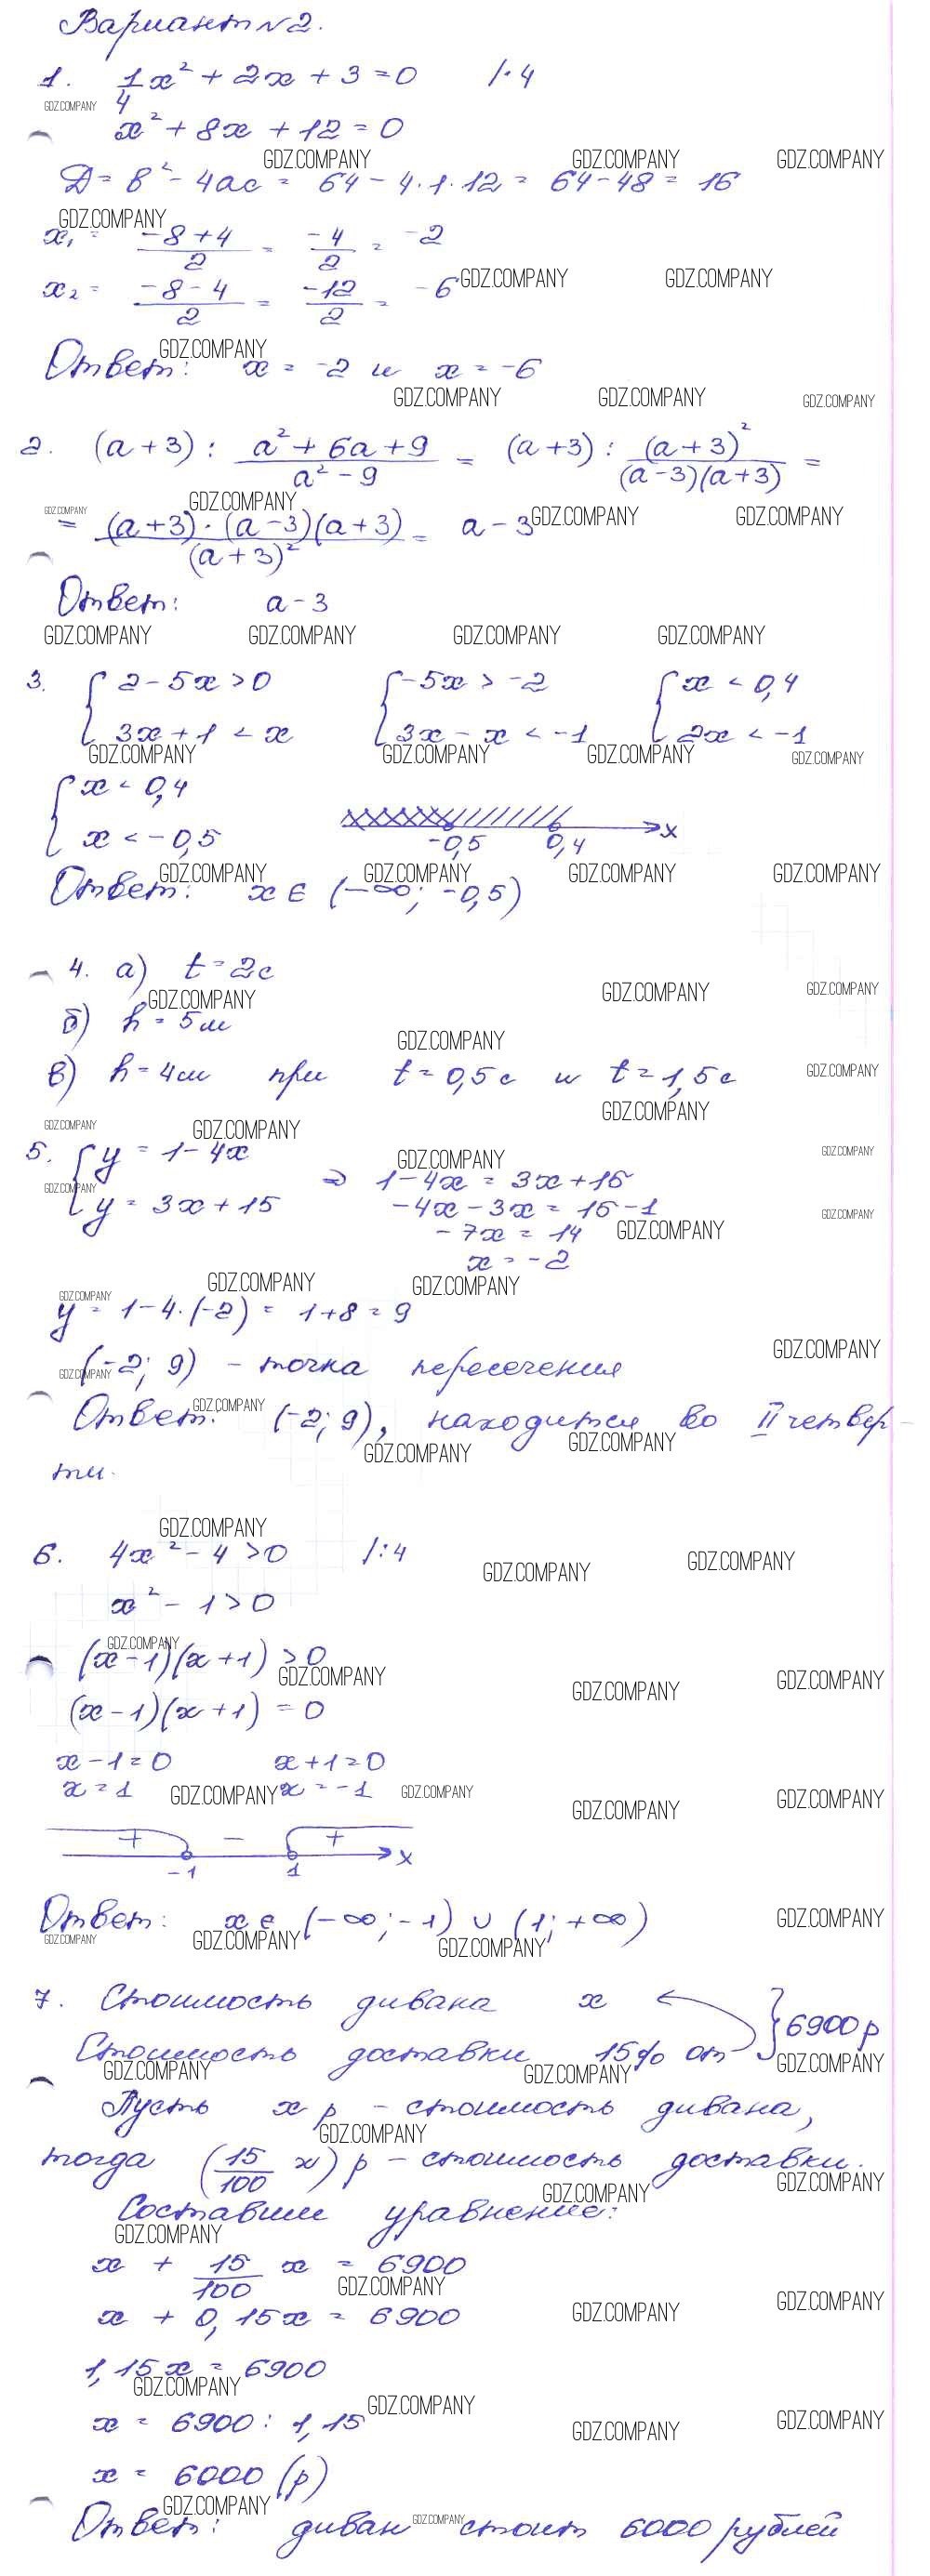 Вариант №2.
1. 1/4 x² + 2x + 3 = 0 /·4
x² + 8x + 12 = 0
Д = в² - 4ac = 64 - 4·1·12 = 64 - 48 = 16
x₁ = (-8+4)/2 = -4/2 = -2
x₂ = (-8-4)/2 = -12/2 = -6
Ответ: x = -2 и x = -6
2. (a+3) : (a²+6a+9)/(a²-9) = (a+3) : (a+3)²/((a-3)(a+3)) =
= ((a+3)·(a-3)(a+3))/(a+3)² = a-3
Ответ: a-3
3. { 2-5x>0 { -5x > -2 { x < 0,4
3x+1 < x 3x - x < -1 2x < -1
{ x < 0,4
x < -0,5
-0,5 0,4 x
Ответ: x ∈ (-∞; -0,5)
4. а) t = 2с
б) h = 5м
в) h = 4м при t = 0,5с и t = 1,5с
5. { y = 1-4x ⇒ 1-4x = 3x+15
y = 3x+15 -4x-3x = 15-1
-7x = 14
x = -2
y = 1-4·(-2) = 1+8 = 9
(-2; 9) - точка пересечения
Ответ: (-2; 9), находится во II четвер-
ти.
6. 4x² - 4 > 0 /:4
x² - 1 > 0
(x-1)(x+1) > 0
(x-1)(x+1) = 0
x-1=0 x+1=0
x=1 x=-1
+ - +
-1 1 x
Ответ: x ∈ (-∞; -1) ∪ (1; +∞)
7. Стоимость дивана x
Стоимость доставки 15% от } 6900р
Пусть x р - стоимость дивана,
тогда (15/100 x) р - стоимость доставки.
Составим уравнение:
x + 15/100 x = 6900
x + 0,15x = 6900
1,15x = 6900
x = 6900 : 1,15
x = 6000 (р)
Ответ: диван стоит 6000 рублей
GDZ.COMPANY